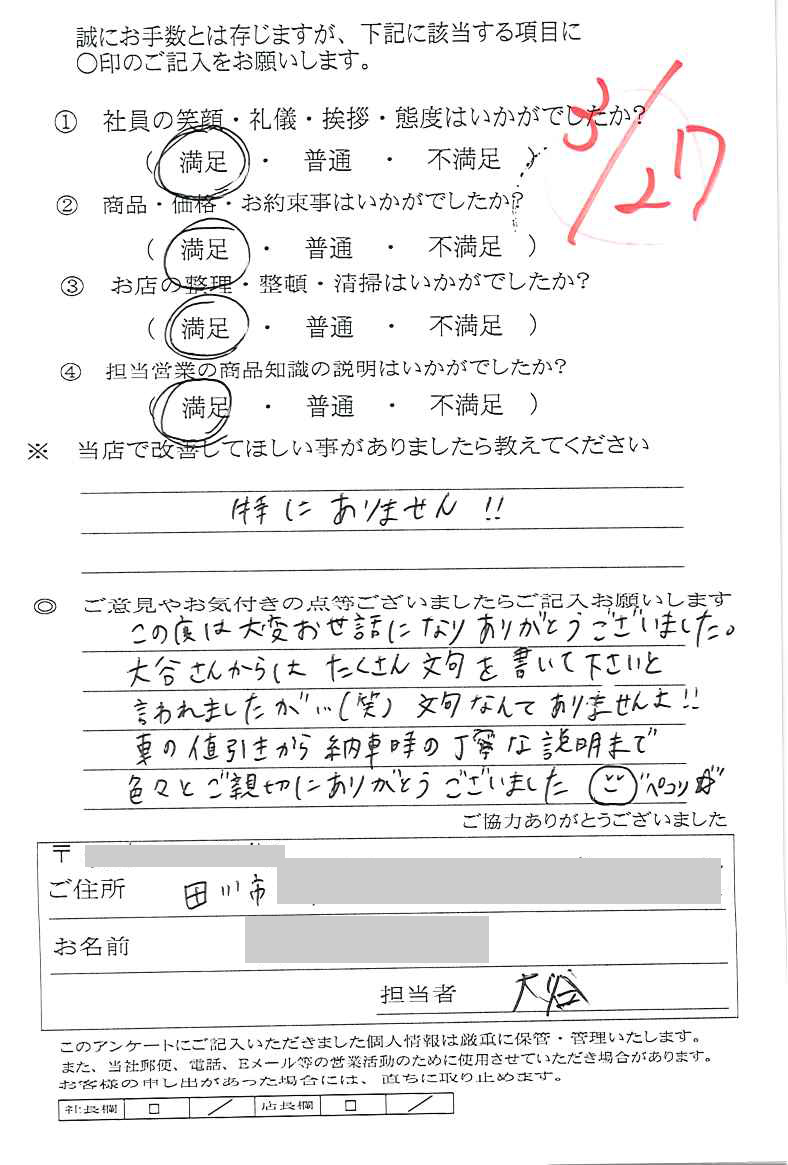 誠にお手数とは存じますが、下記に該当する項目に
〇印のご記入をお願いします。
3/27
① 社員の笑顔・礼儀・挨拶・態度はいかがでしたか?
( 満足 ・ 普通 ・ 不満足 )
② 商品・価格・お約束事はいかがでしたか?
( 満足 ・ 普通 ・ 不満足 )
③ お店の整理・整頓・清掃はいかがでしたか?
( 満足 ・ 普通 ・ 不満足 )
④ 担当営業の商品知識の説明はいかがでしたか?
( 満足 ・ 普通 ・ 不満足 )
※ 当店で改善してほしい事がありましたら教えてください
特にありません!!
◎ ご意見やお気付きの点等ございましたらご記入お願いします
この度は大変お世話になりありがとうございました。
大谷さんからは たくさん文句を書いて下さいと
言われましたが…(笑) 文句なんてありませんよ!!
車の値引きから納車時の丁寧な説明まで
色々とご親切にありがとうございました ペコリ
ご協力ありがとうございました
〒
ご住所 田川市
お名前
担当者 大谷
このアンケートにご記入いただきました個人情報は厳重に保管・管理いたします。
また、当社郵便、電話、Eメール等の営業活動のために使用させていただき場合があります。
お客様の申し出があった場合には、直ちに取り止めます。
社長欄 □ / 店長欄 □ /